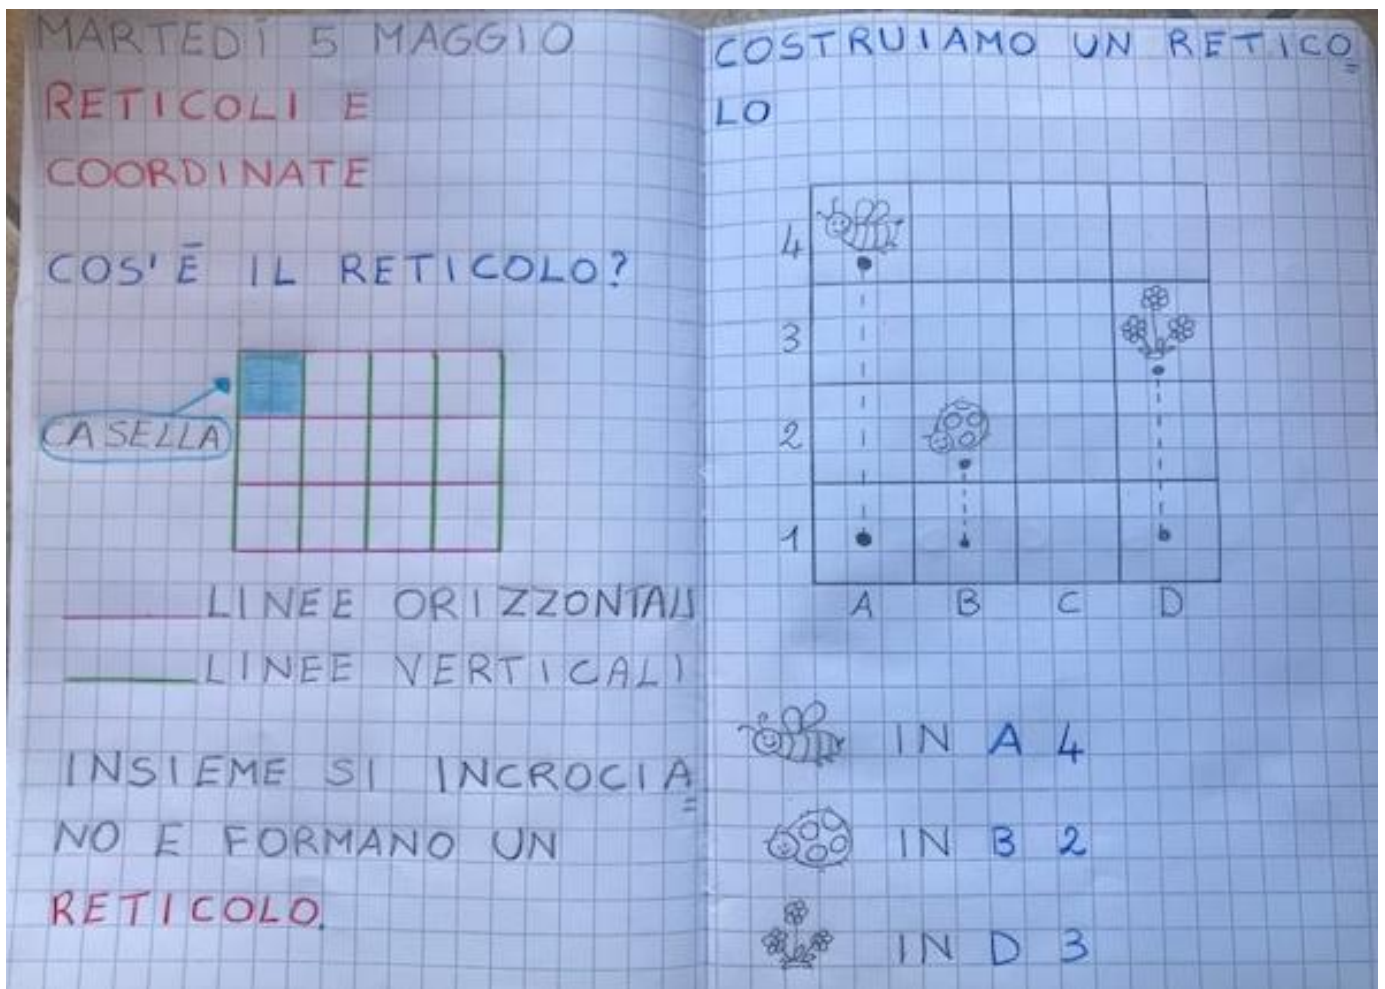 MARTEDÌ 5 MAGGIO
RETICOLI E
COORDINATE
COS'È IL RETICOLO?
CASELLA
LINEE ORIZZONTALI
LINEE VERTICALI
INSIEME SI INCROCIA
NO E FORMANO UN
RETICOLO.
COSTRUIAMO UN RETICO
LO
4
3
2
1
A B C D
IN A 4
IN B 2
IN D 3